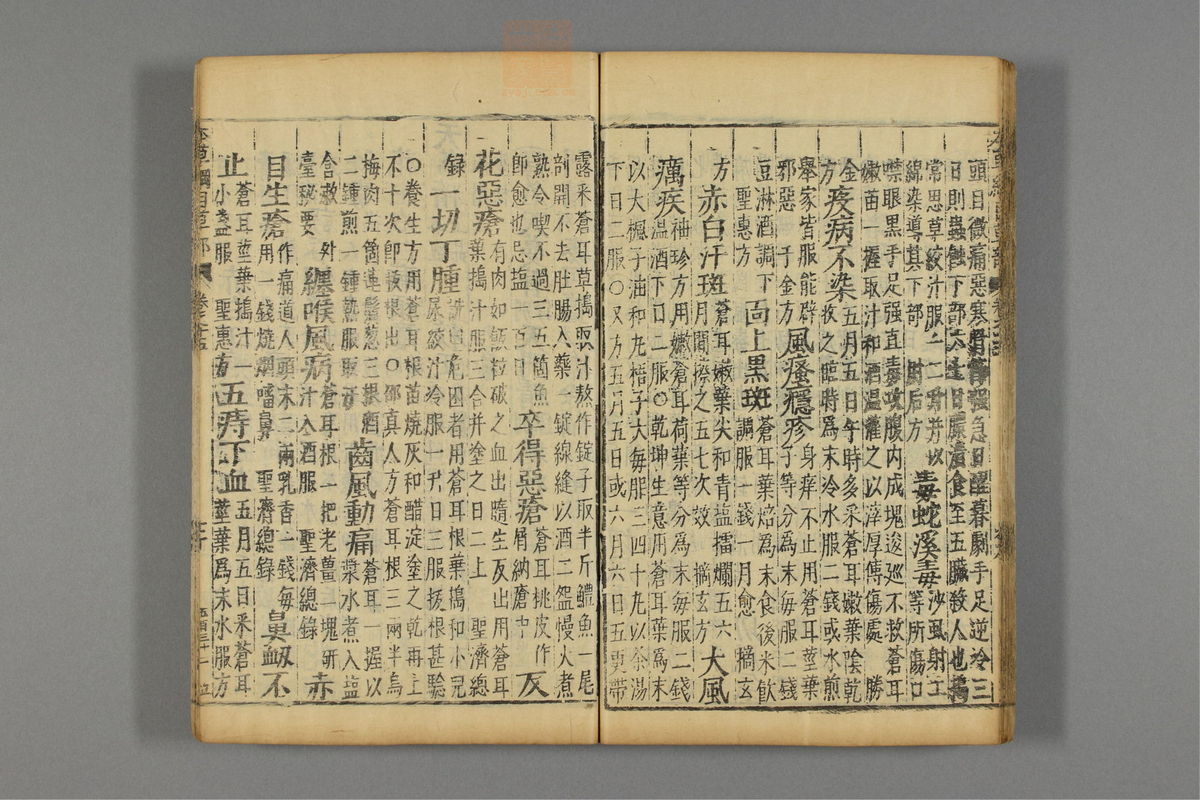 頭目微痛惡寒骨節强急旦醒暮劇手足逆冷三
日則蟲蝕下部六七日膿潰食至五臟殺人也擣
常思草絞汁服一二升并以
綿染導其下部 肘后方 毒蛇溪毒 沙虱射工等所傷口
噤眼黑手足强直毒攻腹内成塊逡巡不救蒼耳
嫩苗一握取汁和酒温灌之以滓厚傅傷處 勝
金方 疫病不染 五月五日午時多采蒼耳嫩葉陰乾
收之臨時爲末冷水服二錢或水煎
舉家皆服能辟
邪惡 千金方 風瘙癮疹 身痒不止用蒼耳莖葉
子等分爲末每服二錢
豆淋酒調下
聖惠方 面上黑斑 蒼耳葉焙爲末食後米飲
調服一錢一月愈 摘玄
方 赤白汗斑 蒼耳嫩葉尖和青鹽擂爛五六
月間擦之五七次效 摘玄方 大風
癘疾 袖珍方用嫩蒼耳荷葉等分爲末每服二錢
温酒下日二服○乾坤生意用蒼耳葉爲末
以大楓子油和丸梧子大每服三四十丸以茶湯
下日二服○又方五月五日或六月六日五更帶
露采蒼耳草擣取汁熬作錠子取半斤鱧魚一尾
剖開不去肚腸入藥一錠線縫以酒二盌慢火煮
熟令喫不過三五箇魚
即愈也忌鹽一百日 卒得惡瘡 蒼耳桃皮作
屑納瘡中 反
花惡瘡 有肉如飯粒破之血出隨生反出用蒼耳
葉擣汁服三合并塗之日二上 聖濟總
録 一切丁腫 詵曰危困者用蒼耳根葉擣和小兒
尿絞汁冷服一升日三服拔根甚驗
○養生方用蒼耳根苗燒灰和醋澱塗之乾再上
不十次即拔根出○邵真人方蒼耳根三兩半烏
梅肉五箇連鬚葱三根酒
二鍾煎一鍾熱服取汗 齒風動痛 蒼耳一握以
漿水煮入鹽
含漱 外
臺秘要 纏喉風病 蒼耳根一把老薑一塊研
汁入酒服 聖濟總錄 赤
目生瘡 作痛道人頭末二兩乳香一錢每
用一錢燒烟㗜鼻 聖濟總錄 鼻衄不
止 蒼耳莖葉擣汁一
小盞服 聖惠方 五痔下血 五月五日采蒼耳
莖葉爲末水服方